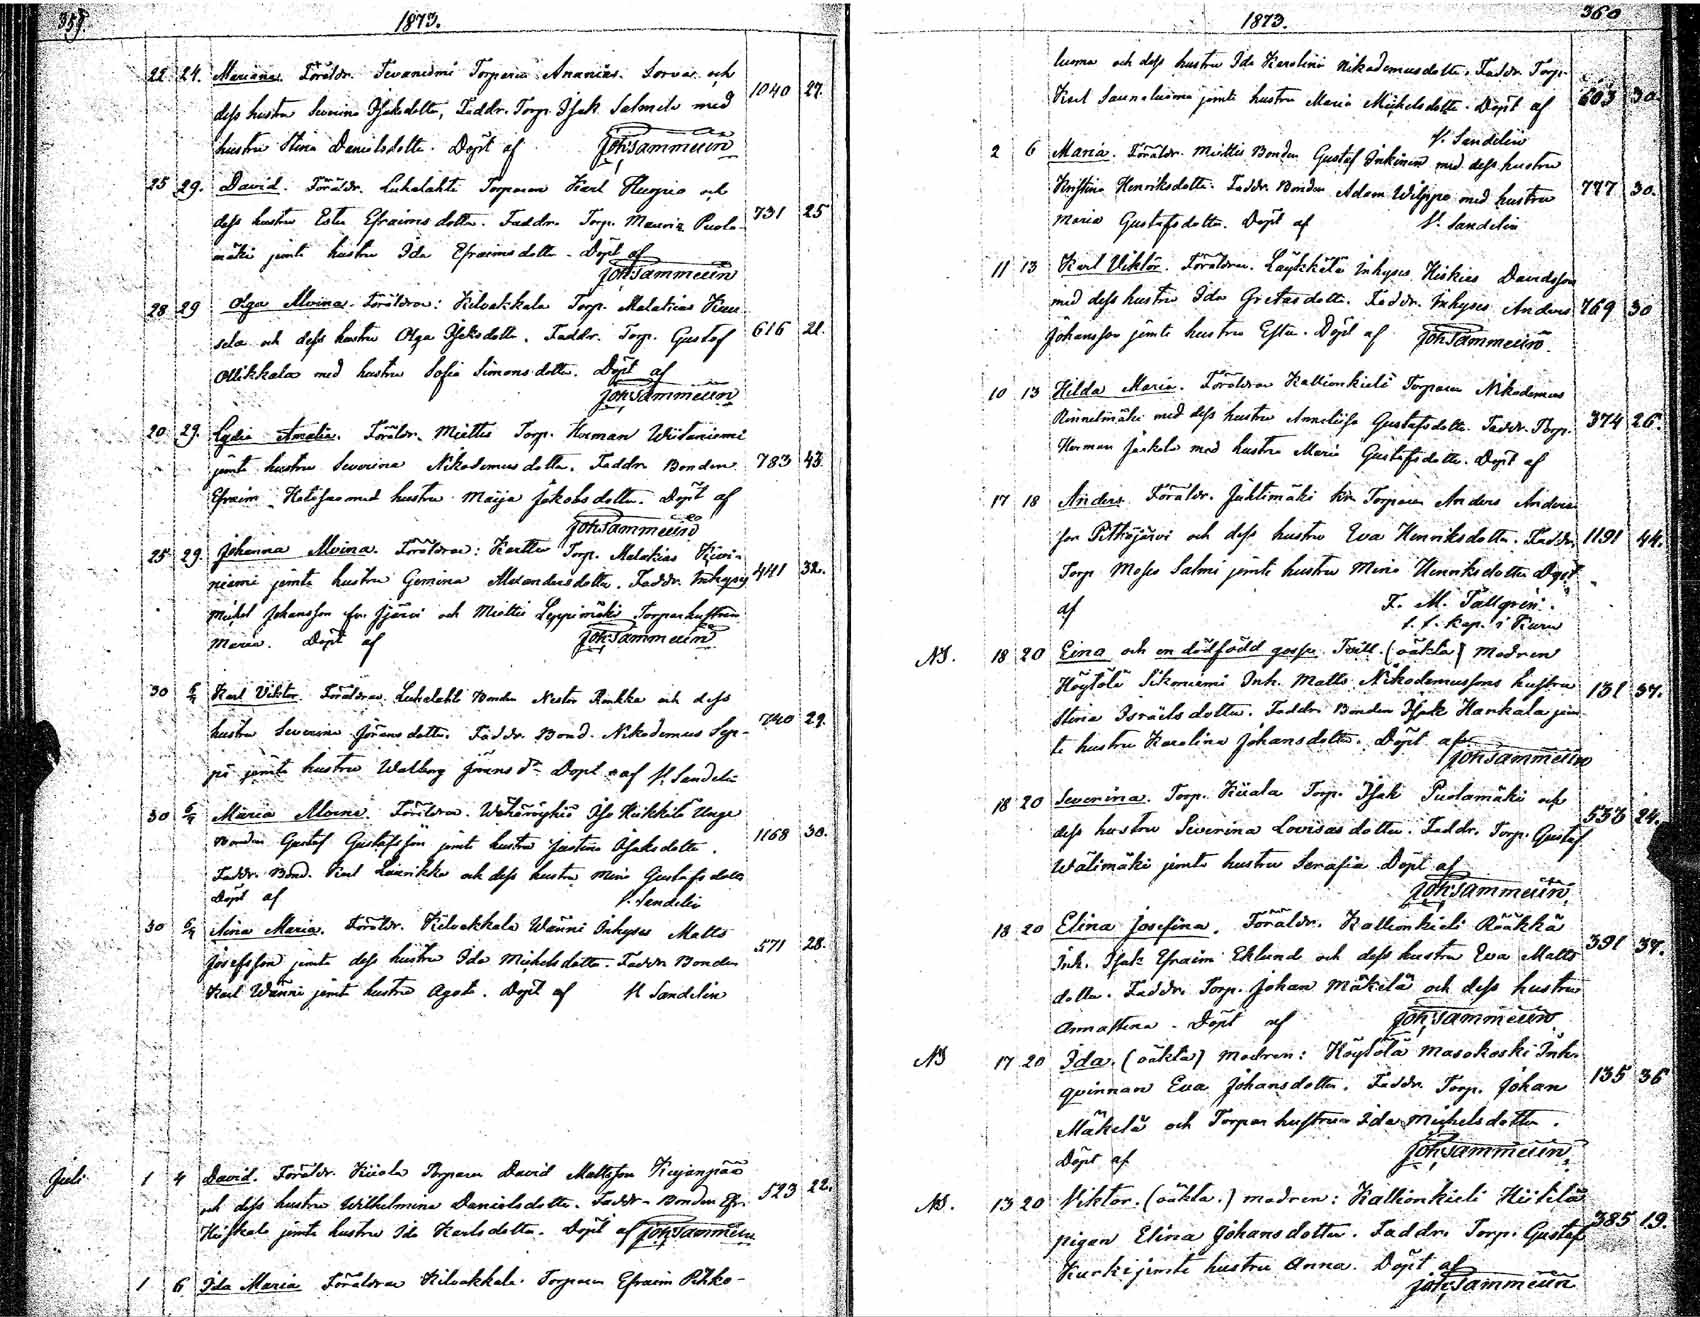 359.
1873.
22 24. Mariana. Föräldr. Tevaniemi Torparen Ananias Sorva och
dess hustru Severina Isaksdotter, Faddr. Torp. Isak Salmela med 1040 27.
hustru Stina Danielsdotter. Döpt af Joh. Sammeun
25 29. David. Föräldr. Luhalahti Torparen Karl och
dess hustru Ester Efraimsdotter. Faddr. Torp. Mauriz Puola- 731 25
mäki jemte hustru Ida Efraimsdotter. Döpt af
Joh. Sammeun
28 29 Olga Alvina. Föräldrar: Kilvakkala Torp. Malakias Kuu
sela och dess hustru Olga Isaksdotter. Faddr. Torp. Gustaf 616 21.
Ollikkala med hustru Sofia Simonsdotter. Döpt af
Joh. Sammeun
20 29. Lydia Amalia. Föräldr. Miettis Torp. Herman Wiitaniemi
jemte hustru Severina Nikodemusdotter. Faddr. Bonden 783 43.
Efraim med hustru Maija Jakobsdotter. Döpt af
Joh. Sammeun
25 29. Johanna Alvina. Föräldrar: Torp. Malakias Kivi-
niemi jemte hustru Gemina Alexandersdotter. Faddr. Inhyses 441 32.
Michel Johansson fr. och Miettis Leppimäki Torparhustrun
Maria. Döpt af Joh. Sammeun
30 6/7 Karl Viktor. Föräldrar Luhalahti Bonden Nestor och dess
hustru Severina Göransdotter. Faddr. Bond. Nikodemus Sep- 740 29.
pä jemte hustru Walborg Göransdr. Döpt af V. Sandelin
30 6/7 Maria Alvina. Föräldrar. Iso Heikkilä Unge
Bonden Gustaf Gustafsson jemte hustru Justina Isaksdotter. 1168 30.
Faddr. Bond. Karl och dess hustru Maria Gustafsdotter
Döpt af V. Sandelin
30 6/7 Maria. Föräldr. Kilvakkala Wänni Inhyses Matts
Josefsson jemte dess hustru Ida Michelsdotter. Faddr. Bonden 571 28.
Karl Wänni jemte hustru Agata. Döpt af V. Sandelin
Juli 1 4 David. Föräldr. Torparen David Mattsson Kujanpää
och dess hustru Wilhelmina Danielsdotter. Faddr. Bonden Efr. 523 22.
jemte hustru Ida Karlsdotter. Döpt af Joh. Sammeun
1 6. Ida Maria Föräldrar Kilvakkala. Torparen Efraim Pihko-
1873.
360
luoma och dess hustru Ida Karolina Nikodemusdotter. Faddr. Torp.
Karl Saunaluoma jemte hustru Maria Michelsdotter. Döpt af 603 30.
V. Sandelin
2 6 Maria. Föräldr. Miettis Bonden Gustaf Inkinen med dess hustru
Kristina Henriksdotter. Faddr. Bonden Adam Wilppo med hustru 777 30.
Maria Gustafsdotter. Döpt af V. Sandelin
11 13 Karl Viktor. Föräldrar. Läykkälä Inhyses Hiskias Davidsson
med dess hustru Ida Gretasdotter. Faddr. Inhyses Anders 769 30
Johansson jemte hustru Ester. Döpt af Joh. Sammeun.
10 13 Hilda Maria. Föräldrar Kallionkieli Torparen Nikodemus
med dess hustru Annaliisa Gustafsdotter. Faddr. Torp. 374 26.
Herman med hustru Maria Gustafsdotter. Döpt af
17 18 Anders. Föräldr. Juhtimäki Torparen Anders Anders-
son Pitkäjärvi och dess hustru Eva Henriksdotter. Faddr. 1191 44.
Torp. Moses Salmi jemte hustru Maria Henriksdotter Döpt
af F. M. Tallgren.
t. f. kap. i Kuru
NB. 18 20 Eina och en dödfödd gosse Tvill. (oäkta) modren
Höytölä Sikoniemi Inh. Matts Nikodemussons hustru 131 37.
Stina Israelsdotter. Faddr. Bonden Isak Hankala jem-
te hustru Karolina Johansdotter. Döpt af Joh. Sammeun
18 20 Severina. Torp. Torp. Isak Puolamäki och
dess hustru Severina Lovisasdotter. Faddr. Torp. Gustaf 533 24.
Wälimäki jemte hustru Serafia. Döpt af
Joh. Sammeun
18 20 Elina Josefina. Föräldr. Kallionkieli Rääkkä
Inh. Isak Efraim Eklund och dess hustru Eva Matts- 391 37.
dotter. Faddr. Torp. Johan Mäkilä och dess hustru
Annastina. Döpt af Joh. Sammeun
NB 17 20 Ida. (oäkta) modren: Höytölä Masokoski Inh.
qvinnan Eva Johansdotter. Faddr. Torp. Johan 135 36
Mäkelä och Torparhustrun Ida Michelsdotter.
Döpt af Joh. Sammeun
NB. 13 20 Viktor. (oäkta.) modren: Kallionkieli Hietilä
pigan Elina Johansdotter. Faddr. Torp. Gustaf 385 19.
Kurki jemte hustru Anna. Döpt af
Joh. Sammeun